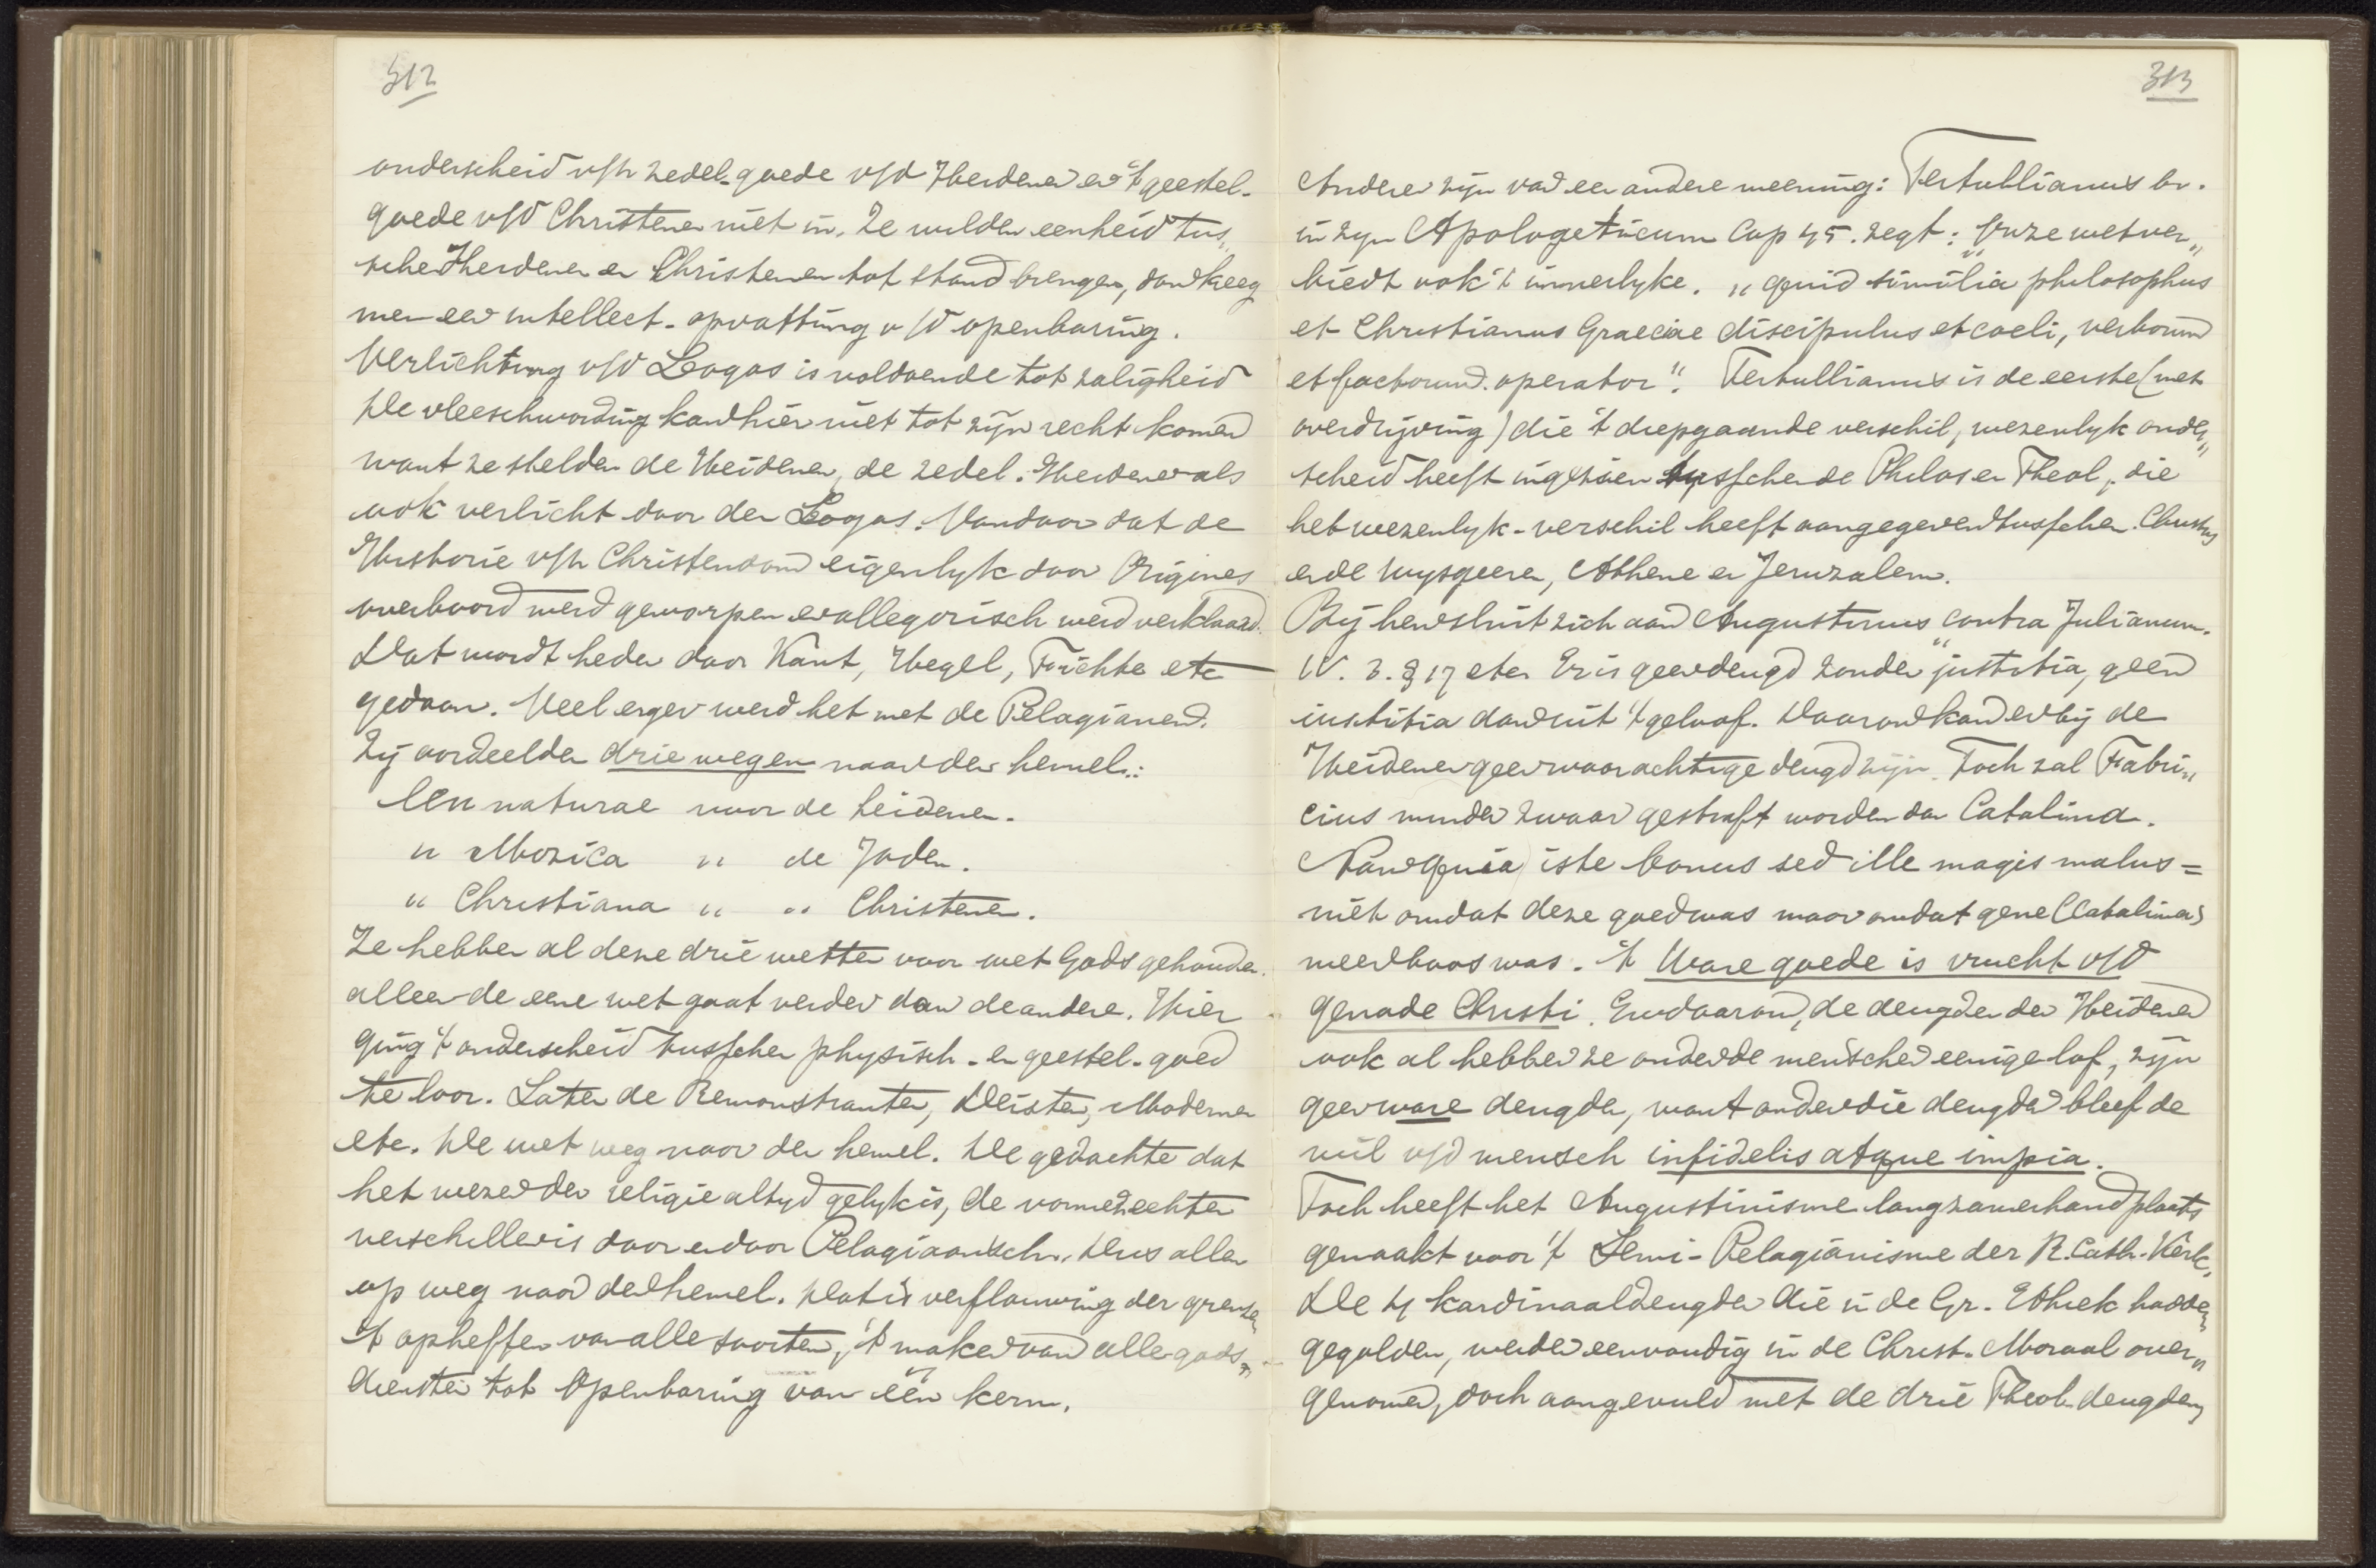 312
onderscheid v/h zedel-goede v/d Heidenen en 't geestel-
goede v/d Christenen niet in. Ze wilden eenheid tus„
schen Heidenen en Christenen tot stand brengen, dan kreeg
men een intellect-opvatting v/d openbaring.
Verlichting v/d Logos is voldoende tot zaligheid
De vleeschwording kan hier niet tot zijn recht komen
want ze stelden de Heidenen, de zedel. Heidenen als
ook verlicht door den Logos. Vandaar dat de
Historie v/h Christendom eigenlyk door Origines
overboord werd geworpen en allegorisch werd verklaard.
Dat wordt heden door Kant, Hegel, Fichte etc
gedaan. Veel erger werd het met de Pelagianen.
Zij oordeelden drie wegen naar den hemel:
Lex naturae voor de heidenen.
„ Mozaica „ de Joden.
„ Christiana „ „ Christenen.
Ze hebben al deze drie wetten voor wet Gods gehouden.
alleen de eene wet gaat verder dan de andere. Hier
ging 't onderscheid tusschen physisch- en geestel-goed
te loor. Later de Remonstranten, Deisten, Modernen
etc. De wet weg naar den hemel. De gedachte dat
het wezen der religie altyd gelyk is, de vormen echter
verschillen is door en door Pelagiaansch. Dus allen
op weg naar den hemel. Dat is verflauwing der grenzen
't opheffen van alle soorten, 't maken van alle gods„
diensten tot Openbaring van één kern.
313
Anderen zijn van een andere meening: Tertullianus bv.
in zyn Apologeticum Cap 45. zegt: „Onze wet ver„
biedt ook 't innerlyke. „quid similia philosophus
et Christianus Graeciae discipulus et coeli, verborum
et factorum operator". Tertullianus is de eerste (met
overdrijving) die 't diepgaande verschil, wezenlyk onder„
scheid heeft ingezien tusschen de Philos en Theol, die
het wezenlyk-verschil heeft aangegeven tusschen Christus
en de wysgeeren, Athene en Jeruzalem.
Bij hen sluit zich aan Augustinus „contra Julianum.
IV. 3. § 17 etc. Er is geen deugd zonder justitia, geen
iustitia dan uit 't geloof. Daarom kan er bij de
Heidenen geen waarachtige deugd zijn. Toch zal Fabri„
cius minder zwaar gestraft worden dan Catalina.
Non quia iste bonus sed ille magis malus =
niet omdat deze goed was maar omdat gene (Catalina)
meer boos was. 't Ware goede is vrucht v/d
genade Christi. En daarom, de deugden der Heidenen
ook al hebben ze onder de menschen eenige lof, zijn
geen ware deugden, want onder die deugden bleef de
wil v/d mensch infidelis atque impia.
Toch heeft het Augustinisme langzamerhand plaats
gemaakt voor 't Semi-Pelagianisme der R. Cath. Kerk.
De 4 kardinaaldeugden die in de Gr. Ethiek hadden
gegolden, werden eenvoudig in de Christ. Moraal over„
genomen, doch aangevuld met de drie Theol. deugden,